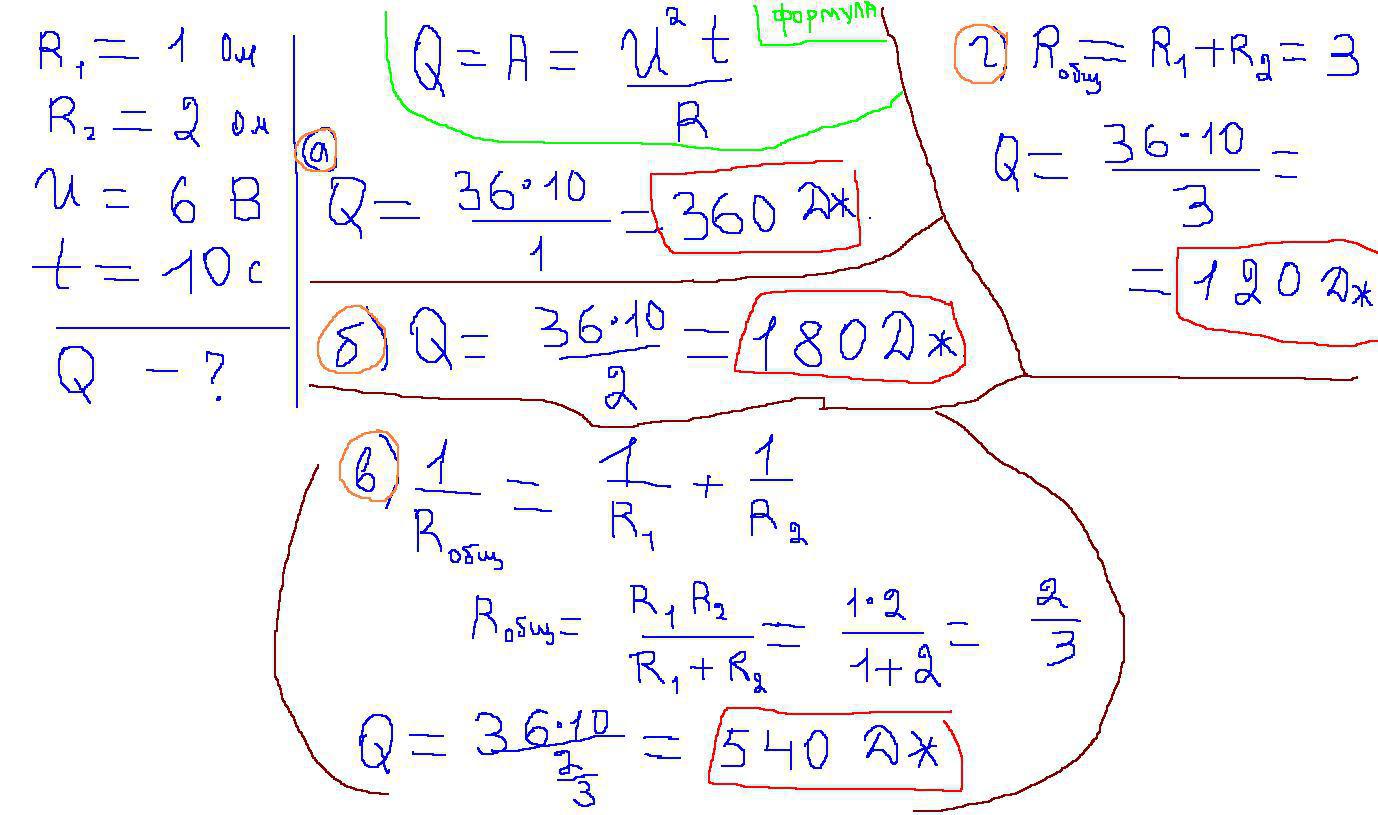 R₁ = 1 ом
R₂ = 2 ом
U = 6 В
t = 10 с
Q - ?
формула
Q = A = U² t / R
а) Q = 36·10 / 1 = 360 Дж
б) Q = 36·10 / 2 = 180 Дж
г) Rобщ = R₁ + R₂ = 3
Q = 36·10 / 3 =
= 120 Дж
в) 1 / Rобщ = 1 / R₁ + 1 / R₂
Rобщ = R₁ R₂ / R₁ + R₂ = 1·2 / 1+2 = 2 / 3
Q = 36·10 / 2/3 = 540 Дж